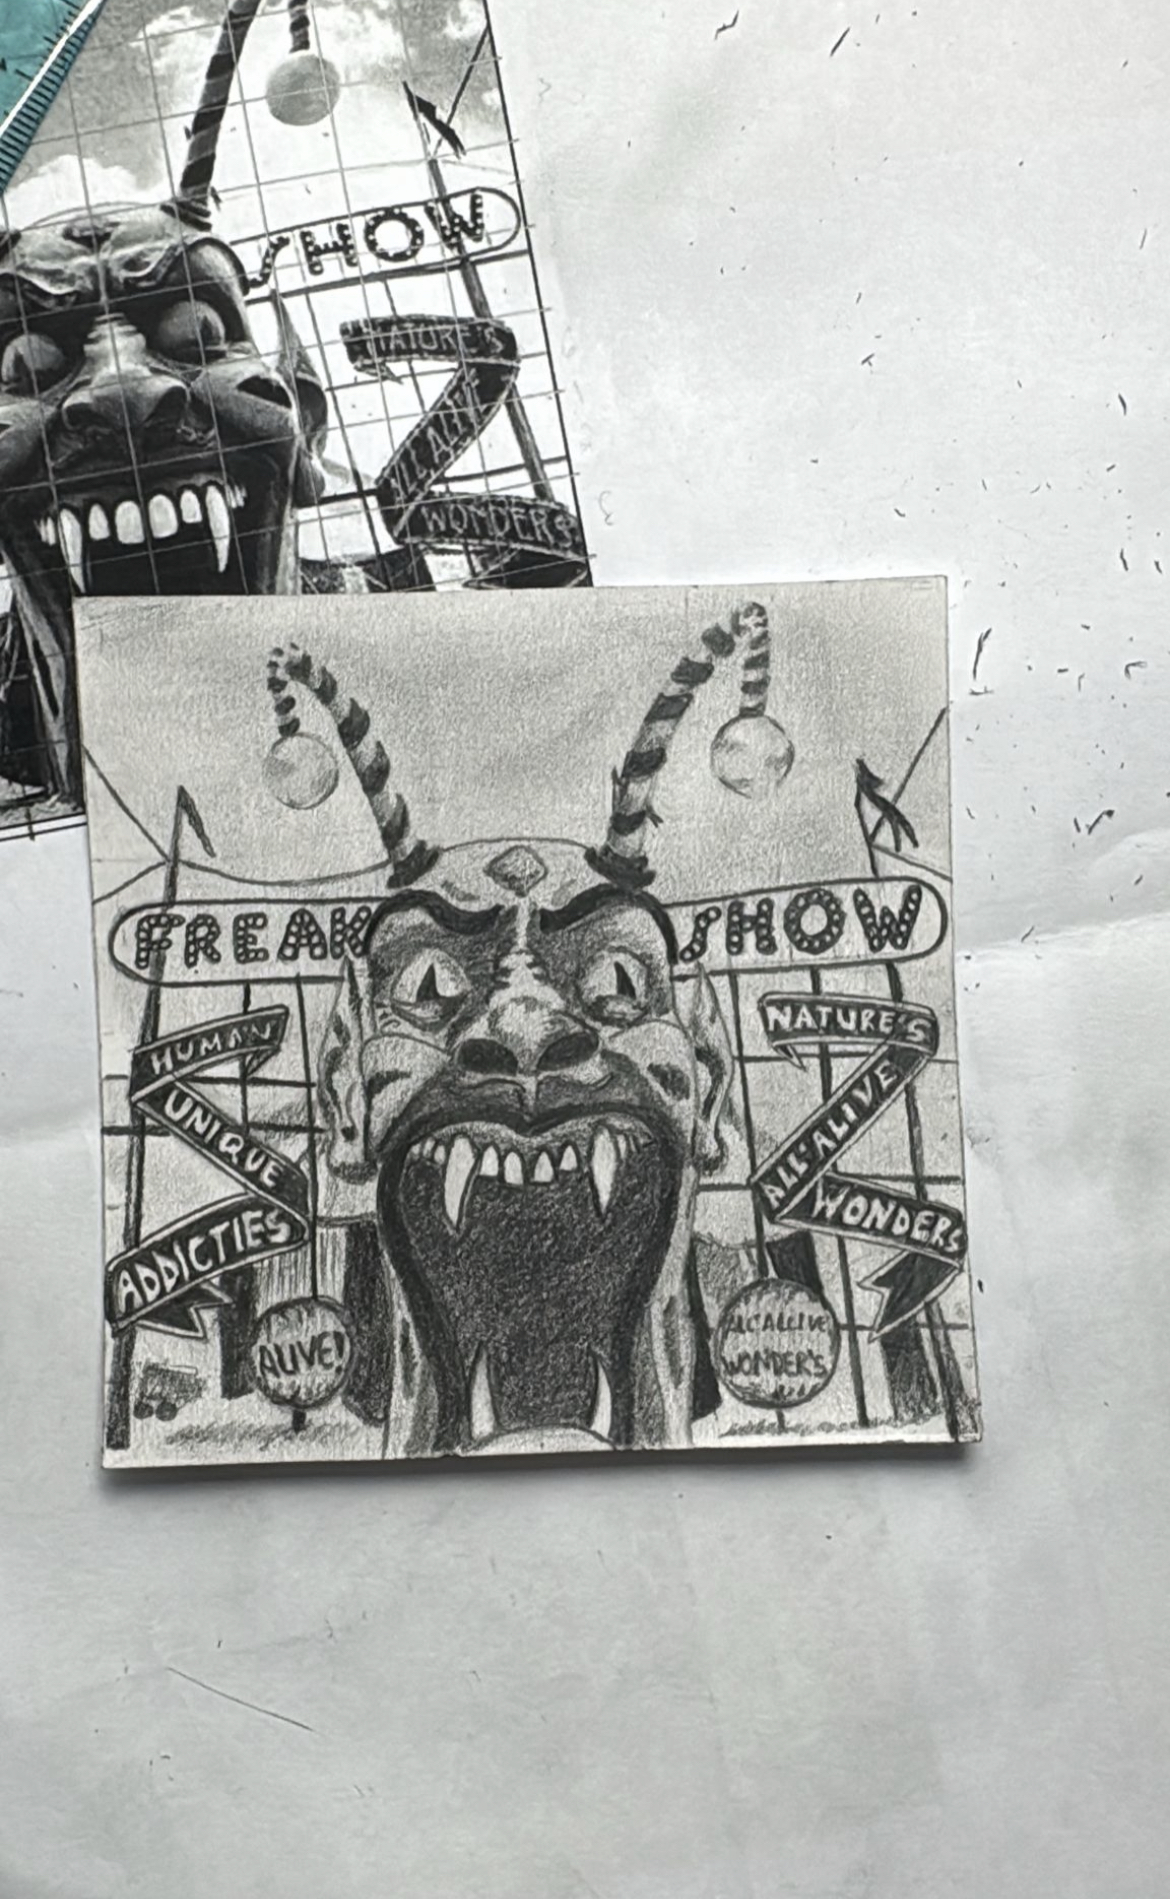 SHOW
NATURE'S
ALL ALIVE
WONDERS
FREAK SHOW
HUMAN
UNIQUE
ADDICTIES
NATURE'S
ALL ALIVE
WONDERS
ALIVE!
ALL ALLIVE
WONDER'S